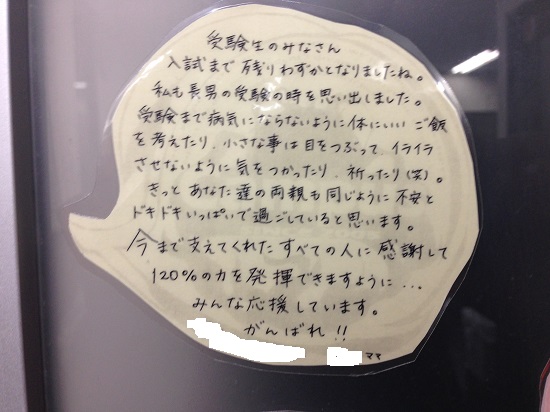 受験生のみなさん
入試まで残りわずかとなりましたね。
私も長男の受験の時を思い出しました。
受験まで病気にならないように体にいいご飯
を考えたり、小さな事は目をつぶって、イライラ
させないように気をつかったり、祈ったり(笑)。
きっとあなた達の両親も同じように不安と
ドキドキいっぱいで過ごしていると思います。
今まで支えてくれたすべての人に感謝して
120%の力を発揮できますように…。
みんな応援しています。
がんばれ!!
ママ